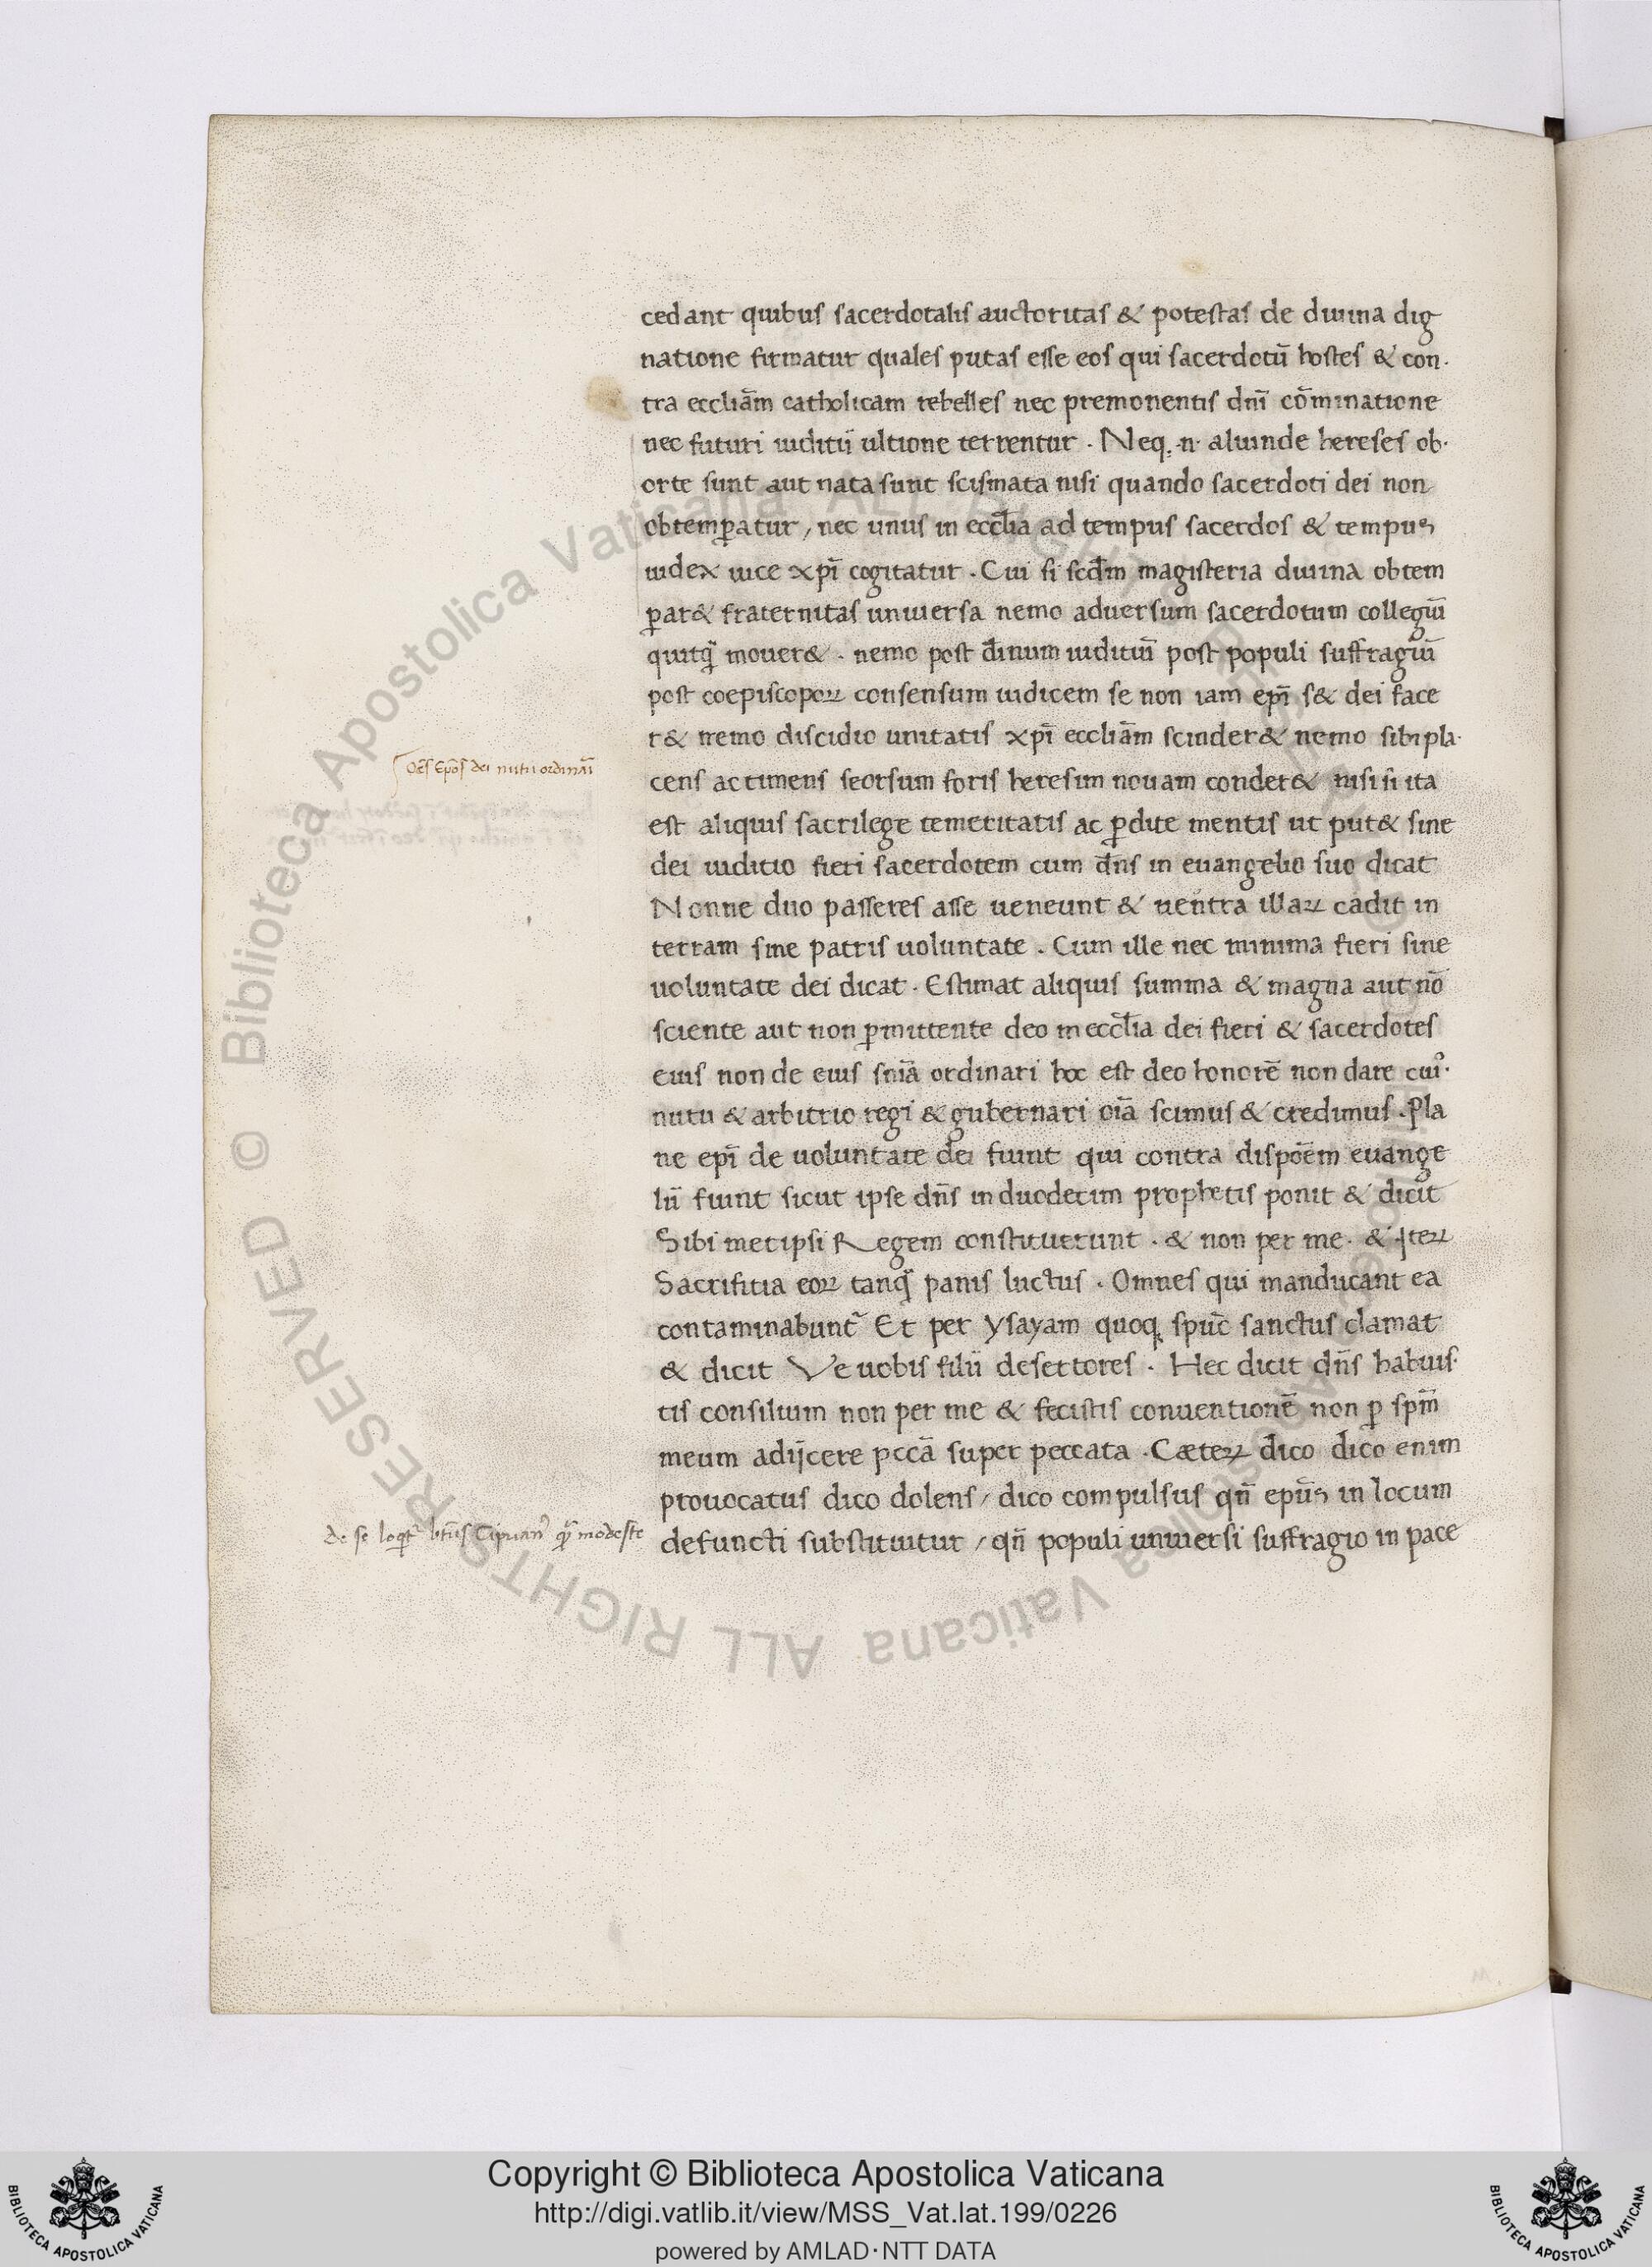 cedant quibus sacerdotalis auctoritas & potestas de diuina dig
natione firmatur quales putas esse eos qui sacerdotū hostes & con·
tra eccliā̄m catholicam rebelles nec premonentis dnī cōminatione
nec futuri iuditii ultione terrentur · Neq; ·n· aliunde hereses ob·
orte sunt aut nata sunt scismata nisi quando sacerdoti dei non
obtemꝑatur / nec unus in eccl̄ia ad tempus sacerdos & tempus
iudex uice xpī cogitatur · Cui si scd̄m magisteria diuina obtem
ꝑar& fraternitas uniuersa nemo aduersum sacerdotum collegiū
quitq̄ mouer& · nemo post diīnum iuditiū post populi suffragiū
post coepiscopoꝝ consensum iudicem se non iam epī s& dei face
r& nemo discidio unitatis xpī eccliām scinder& nemo sibi pla·
cens ac timens seorsum foris heresim nouam conder& nisi si ita
Oēs Epōs dei nutu ordinaī
est aliquis sacrilege temeritatis ac ꝑdite mentis ut put& sine
dei iuditio fieri sacerdotem cum dn̄s in euangelio suo dicat
Nonne duo passeres asse ueneunt & uentra illaꝝ cadit in
terram sine patris uoluntate · Cum ille nec minima fieri sine
uoluntate dei dicat · Estimat aliquis summa & magna aut nō
sciente aut non ꝑmittente deo in eccl̄ia dei fieri & sacerdotes
eius non de eius sn̄ia ordinari hoc est deo honorē non dare cuiꝰ·
nutu & arbitrio regi & gubernari oīa scimus & credimus · Pla
ne epī de uoluntate dei fiunt qui contra dispōēm euange
lii fiunt sicut ipse dn̄s in duodecim prophetis ponit & dicit
Sibi metipsi Regem constituerunt · & non per me · & Iteꝝ
Sacrifitia eoꝝ tanq̄ panis luctus · Omnes qui manducant ea
contaminabunt᷑ Et per ysayam quoq; spūc sanctus clamat
& dicit Ve uobis filii desertores · Hec dicit dn̄s habuis·
tis consilium non per me & fecistis conuentionē non ꝑ spm̄
meum adijcere pccā super peccata · Cæteꝝ dico dico enim
prouocatus dico dolens / dico compulsus qn̄ epūs in locum
De se loqt᷑ btūs Cipriānꝰ q̄ modeste
defuncti substituitur / qn̄ populi uniuersi suffragio in pace
© Biblioteca Apostolica Vaticana ALL RIGHTS RESERVED
Copyright © Biblioteca Apostolica Vaticana
http://digi.vatlib.it/view/MSS_Vat.lat.199/0226
powered by AMLAD·NTT DATA
BIBLIOTECA APOSTOLICA VATICANA
BIBLIOTECA APOSTOLICA VATICANA